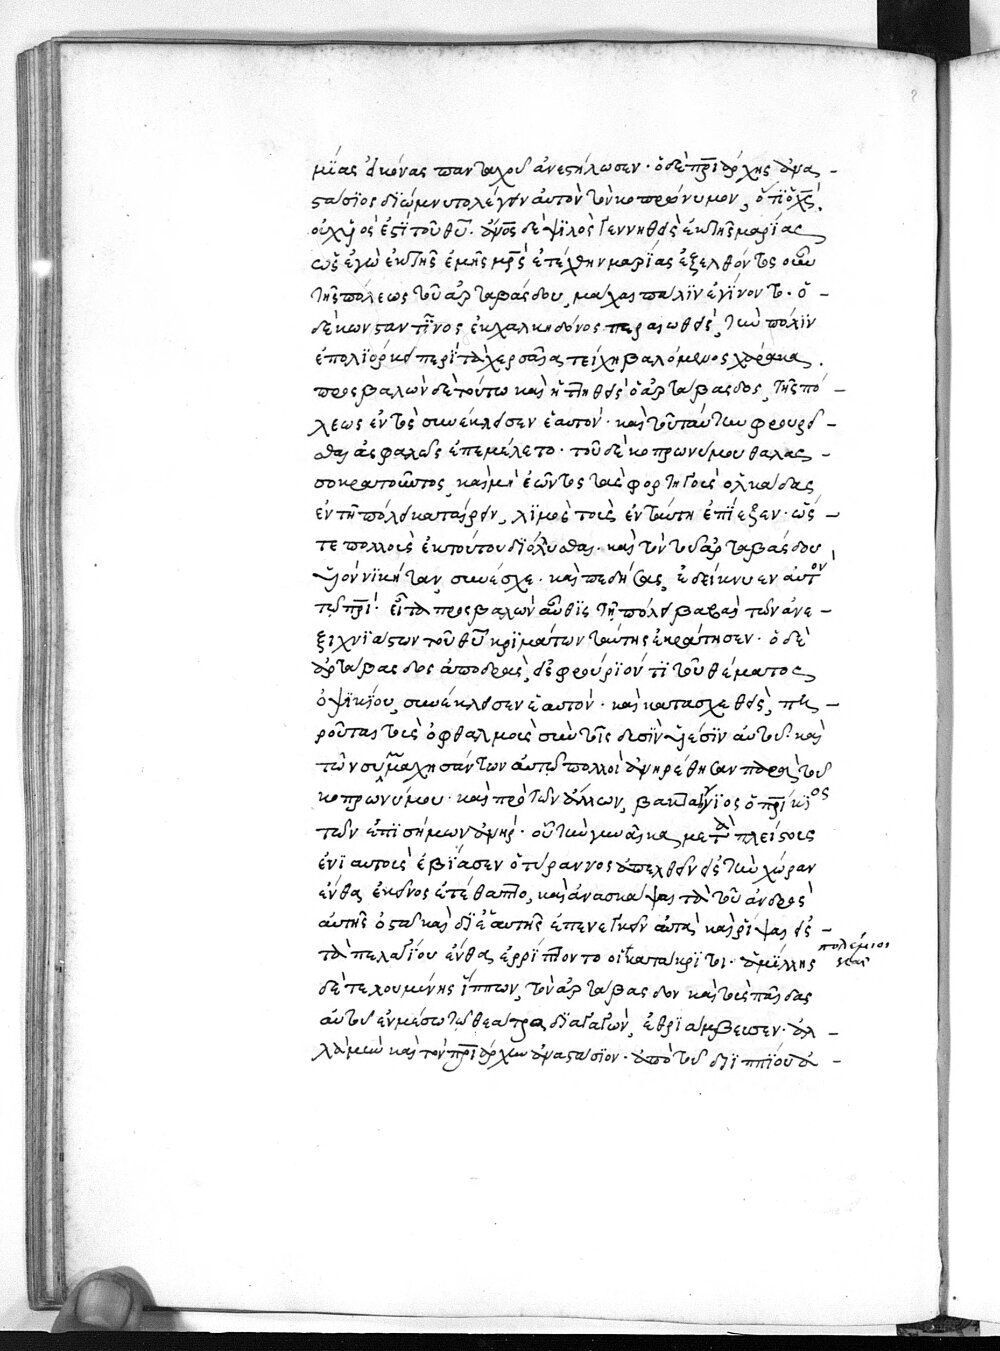 μΐας εἰκόνας πανταχοῦ ἀνεστήλωσεν· ὁ δὲ πρι̅άρχης ἀνα-
στάσϊος διώμνυτο λέγειν αὐτὸν τὸν κοπρώνυμον, ὅτι ὁ χς̅
οὐχ υἱός ἐστι τοῦ θυ̅· ἄνος̅ δὲ ψϊλὸς γεννηθεὶς ἐκ τῆς μαρίας
ὡς ἐγὼ ἐκ τῆς ἐμῆς μρς̅ ἐτέχθην μαρίας ἐξελθόντος οὖν
τῆς πόλεως τοῦ ἀρταβάσδου, μάχαι πάλϊν ἐγίνοντο· ὁ -
δὲ κωνσταντῖνος ἐκ χαλκηδόνος περαιωθεὶς, τὴν πόλϊν
ἐπολϊόρκει περὶ τὰ χερσαῖα τείχη βαλόμενος χάρακα.
προσβαλὼν δὲ τούτω καὶ ἡττηθεὶς ὁ ἀρταβασδος, τῆς πό -
λεως ἐντὸς συνέκλεισεν ἑαυτόν· καὶ τοῦ ταύτην φρουρεῖ -
σθαι ἀσφαλῶς ἐπεμέλετο· τοῦ δὲ κοπρωνύμου θαλασ -
σοκρατοῦντος, καὶ μὴ ἐῶντος τὰς φορτηγοὺς ὁλκάδας
ἐν τῆ πόλει καταίρειν, λϊμὸς τοὺς ἐν ταύτη ἐπΐεζεν· ὥς -
τε πολλοὺς ἐκ τούτου διόλλυσθαι· καὶ τὸν τοῦ ἀρταβάσδου
υἱὸν νϊκήταν, συνέσχε· καὶ πεδήσας, ἐδείκνυεν αὐτὸν
τῶ πρι̅· εἶτα προσβαλὼν αὖθϊς τῆ πόλει βαβαὶ τῶν ἀνε -
ξιχνϊάστων τοῦ θυ̅ κρϊμάτων ταύτης ἐκράτησεν· ὁ δὲ
ἀρταβασδος ἀποδρὰς, εἰς φρούρϊόν τϊ τοῦ θέματος
ὀψϊκίου, συνέκλεισεν ἑαυτόν· καὶ κατασχεθεὶς, πη -
ροῦται τοὺς ὀφθαλμοὺς σὺν τοῖς δυσΐν υἱέσϊν αὐτοῦ· καὶ
τῶν συμμαχησάντων αὐτῶ πολλοὶ ἀνηρέθησαν παρὰ τοῦ
κοπρωνύμου· καὶ πρὸ τῶν ἄλλων, βακτάγγϊος ὁ πρίκϊος
τῶν ἐπϊσήμων ἀνήρ· οὗ τὴν γυναῖκα, μετὰ πλείστους
ἐνϊαυτοὺς ἐβΐασεν ὁ τύραννος ἀπελθεῖν εἰς τὴν χώραν
ἔνθα ἐκεῖνος ἐτέθαπτο, καὶ ἀνασκάψαι τὰ τοῦ ἀνδρὸς
αὐτῆς ὀστᾶ καὶ δϊ ἑαυτῆς ἐπενεγκεῖν αὐτὰ καὶ ῥΐψαι εἰς -
τὰ πελαγΐου ἔνθα ἐρρίπτοντο οἱ κατάκρϊτοι· ἁμΐλλης
δὲ τελουμένης ἵππων, τὸν ἀρτάβασδον καὶ τοὺς παῖδας
αὐτοῦ ἐν μέσω τῶ θεάτρω διαγαγὼν, ἐθρϊάμβευσεν· ἀλ -
λὰ μὴν καὶ τὸν πρι̅άρχην ἀναστάσϊον· ἀπὸ τοῦ διϊππΐου ἀ -